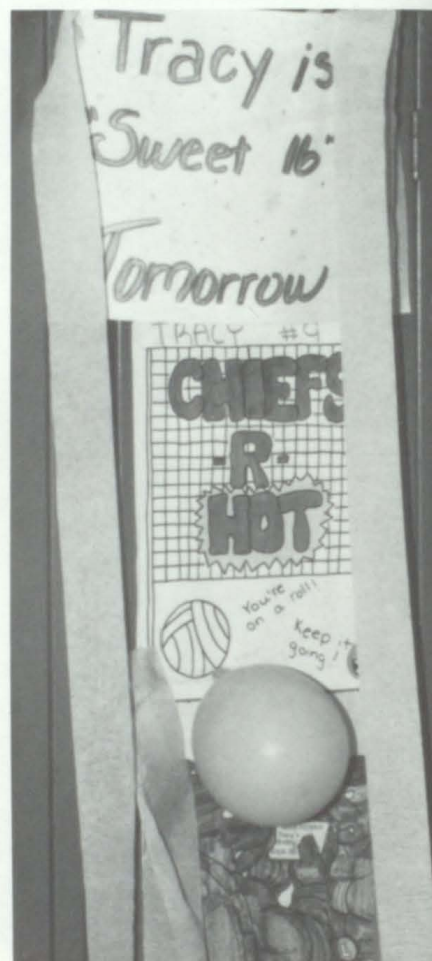 Tracy is
"Sweet 16"
Tomorrow
TRACY #9
CHIEFS
-R-
HOT
You're
on a roll!
Keep it
going!